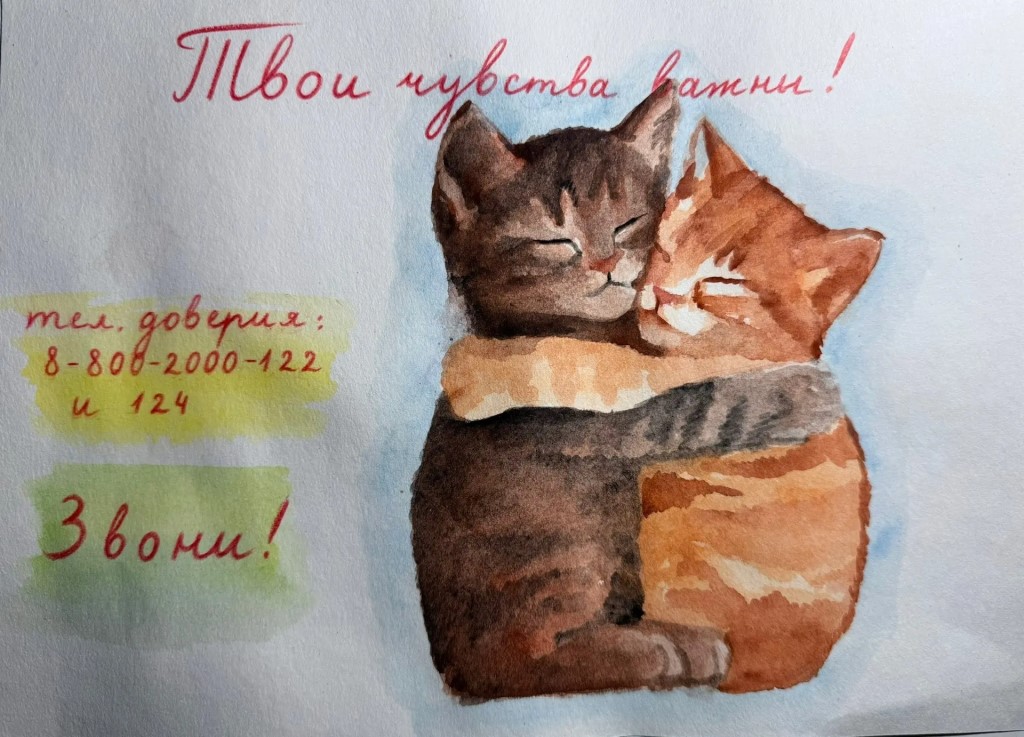 Твои чувства важны!
тел. доверия:
8-800-2000-122
и 124
Звони!